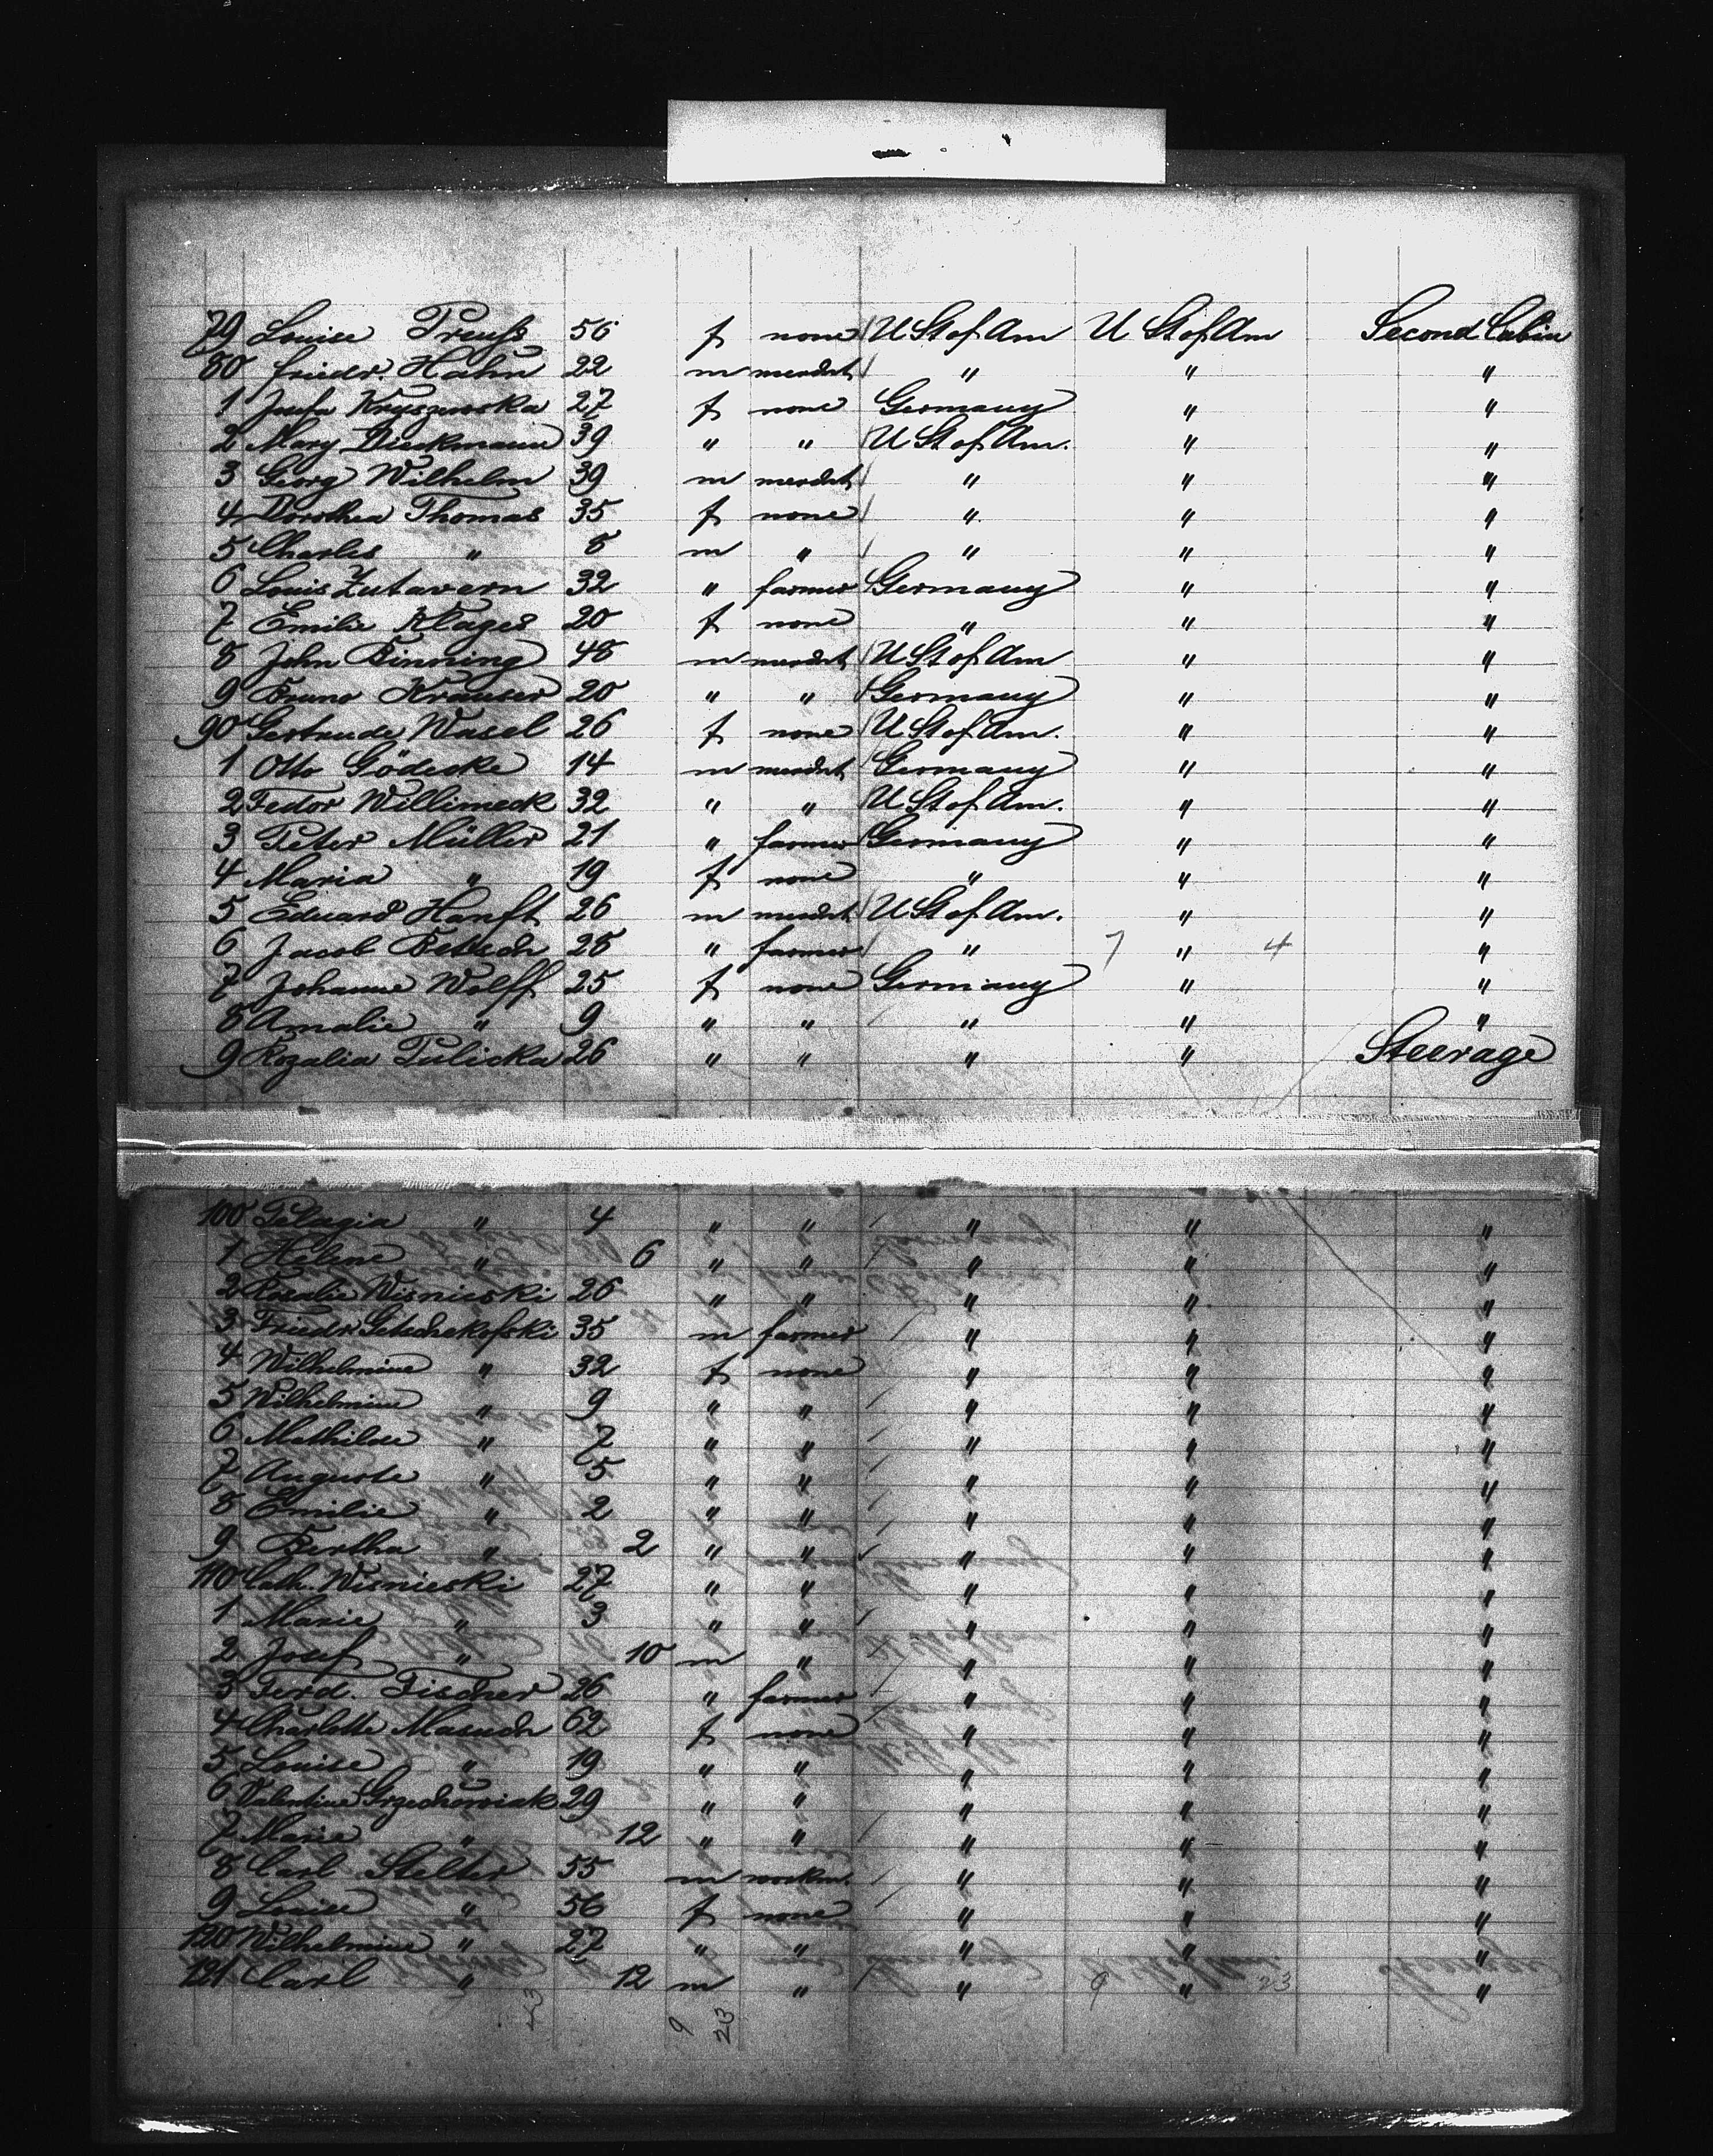 79 Louise Preuß 56 f none U St of Am U St of Am Second Cabin
80 Friedr. Hahn 22 m mercht " " "
1 Josefa Kryszewska 27 f none Germany " "
2 Mary Dieckmann 39 " " U St of Am. " "
3 Georg Wilhelm 39 m mercht " " "
4 Dorothea Thomas 35 f none " " "
5 Charles " 8 m " " " "
6 Louis Zutavern 32 " farmer Germany " "
7 Emilie Klages 20 f none " " "
8 John Binning 48 m mercht U St of Am " "
9 Bruno Krauser 20 " " Germany " "
90 Gertrude Wasel 26 f none U St of Am. " "
1 Otto Gödecke 14 m mercht Germany " "
2 Fedor Willimeck 32 " " U St of Am. " "
3 Peter Müller 21 " farmer Germany " "
4 Maria " 19 f none " " "
5 Eduard Hanft 26 m mercht U St of Am. " "
6 Jacob Betsch 28 " farmer " 7 " 4 "
7 Johanne Wolff 25 f none Germany " "
8 Amalie " 9 " " " " "
9 Rozalia Pulicka 26 " " " " Steerage
100 Pelagia " 4 " " " " "
1 Helene " 6 " " " " "
2 Rosalie Wisnieski 26 " " " " "
3 Friedr Getschekofski 35 m farmer " " "
4 Wilhelmine " 32 f none " " "
5 Wilhelmine " 9 " " " " "
6 Mathilde " 7 " " " " "
7 Auguste " 5 " " " " "
8 Emilie " 2 " " " " "
9 Bertha " 2 " " " " "
110 Cath. Wisnieski 27 " " " " "
1 Marie " 3 " " " " "
2 Josef " 10 m " " " "
3 Ferd. Fischer 26 " farmer " " "
4 Charlotte Masuch 62 f none " " "
5 Louise " 19 " " " " "
6 Valentine Grzechowiak 29 " " " " "
7 Marie " 12 " " " " "
8 Carl Stelter 55 m workm. " " "
9 Louise " 56 f none " " "
120 Wilhelmine " 27 " " " " "
121 Carl " 12 m " " 9 " 23 "
23 9 23